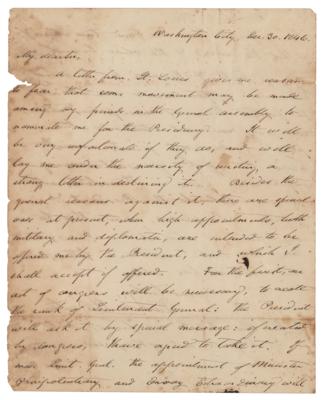 Washington City Dec. 30. 1846.
My dear Sir,
A letter from St. Louis gives me reason
to fear that some movement may be made
among my friends in the General assembly to
nominate me for the Presidency. It will
be very unfortunate if they do, and will
lay me under the necessity of writing a
strong letter in declining it. Besides the
general reasons against it, there are special
ones at present, when high appointments, both
military and diplomatic, are intended to be
offered me by the President, and which I
shall accept if offered. For the first, an
act of congress will be necessary, to create
the rank of Lieutenant General: the President
will ask it by special message: if created
by congress, I have agreed to take it. If
made Lieut. Genl. the appointment of Minister
Plenipotentiary and Envoy Extraordinary will